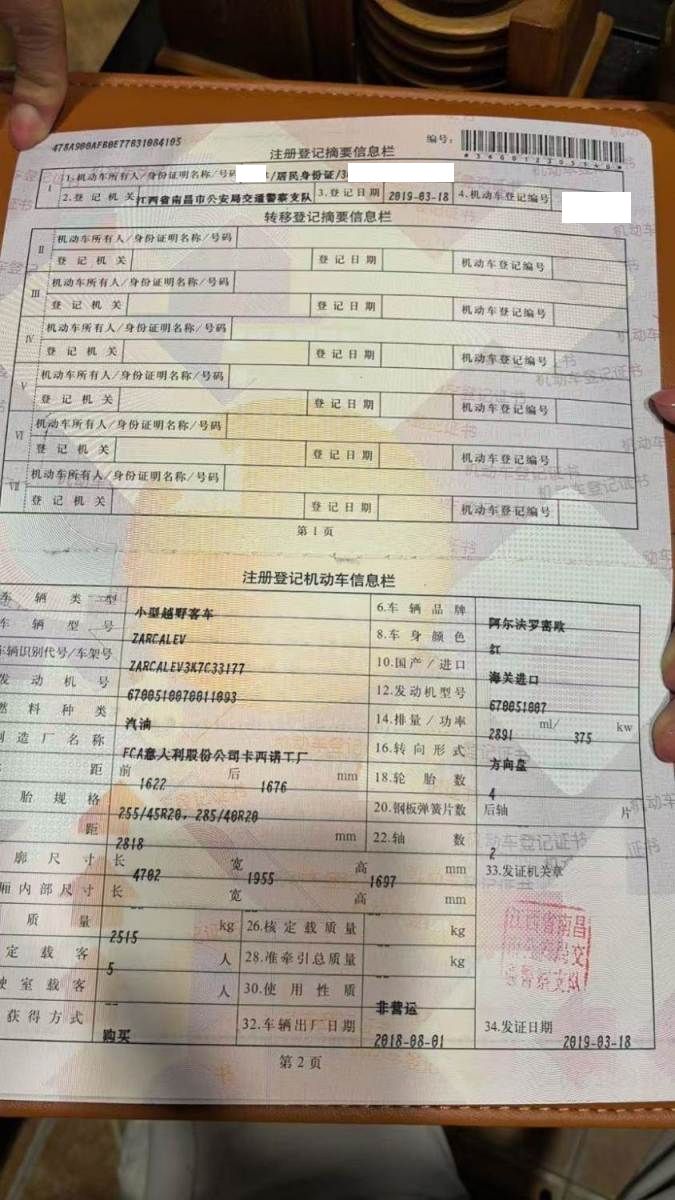 478A900AFB0E77831084105
编号:
*360012305540*
注册登记摘要信息栏
I 1.机动车所有人/身份证明名称/号码 /居民身份证/3
2.登记机关 江西省南昌市公安局交通警察支队 3.登记日期 2019-03-18 4.机动车登记编号
转移登记摘要信息栏
II 机动车所有人/身份证明名称/号码
登记机关 登记日期 机动车登记编号
III 机动车所有人/身份证明名称/号码
登记机关 登记日期 机动车登记编号
IV 机动车所有人/身份证明名称/号码
登记机关 登记日期 机动车登记编号
V 机动车所有人/身份证明名称/号码
登记机关 登记日期 机动车登记编号
VI 机动车所有人/身份证明名称/号码
登记机关 登记日期 机动车登记编号
VII 机动车所有人/身份证明名称/号码
登记机关 登记日期 机动车登记编号
第1页
注册登记机动车信息栏
车辆类型 小型越野客车 6.车辆品牌 阿尔法罗密欧
车辆型号 ZARCALEV 8.车身颜色 红
车辆识别代号/车架号 ZARCALEV3K7C33177 10.国产/进口 海关进口
发动机号 6700510070011093 12.发动机型号 670051007
燃料种类 汽油 14.排量/功率 2891 ml/ 375 kw
制造厂名称 FCA意大利股份公司卡西诺工厂 16.转向形式 方向盘
距 前 1622 后 1676 mm 18.轮胎数 4
胎规格 255/45R20，285/40R20 20.钢板弹簧片数 后轴 片
距 2818 mm 22.轴数 2
廓尺寸 长 4702 宽 1955 高 1697 mm 33.发证机关章
厢内部尺寸 长 宽 高 mm
质量 2515 kg 26.核定载质量 -- kg
定载客 5 人 28.准牵引总质量 -- kg
驶室载客 -- 人 30.使用性质 非营运
获得方式 购买 32.车辆出厂日期 2018-08-01 34.发证日期 2019-03-18
江西省南昌
市公安局交
通警察支队
第2页